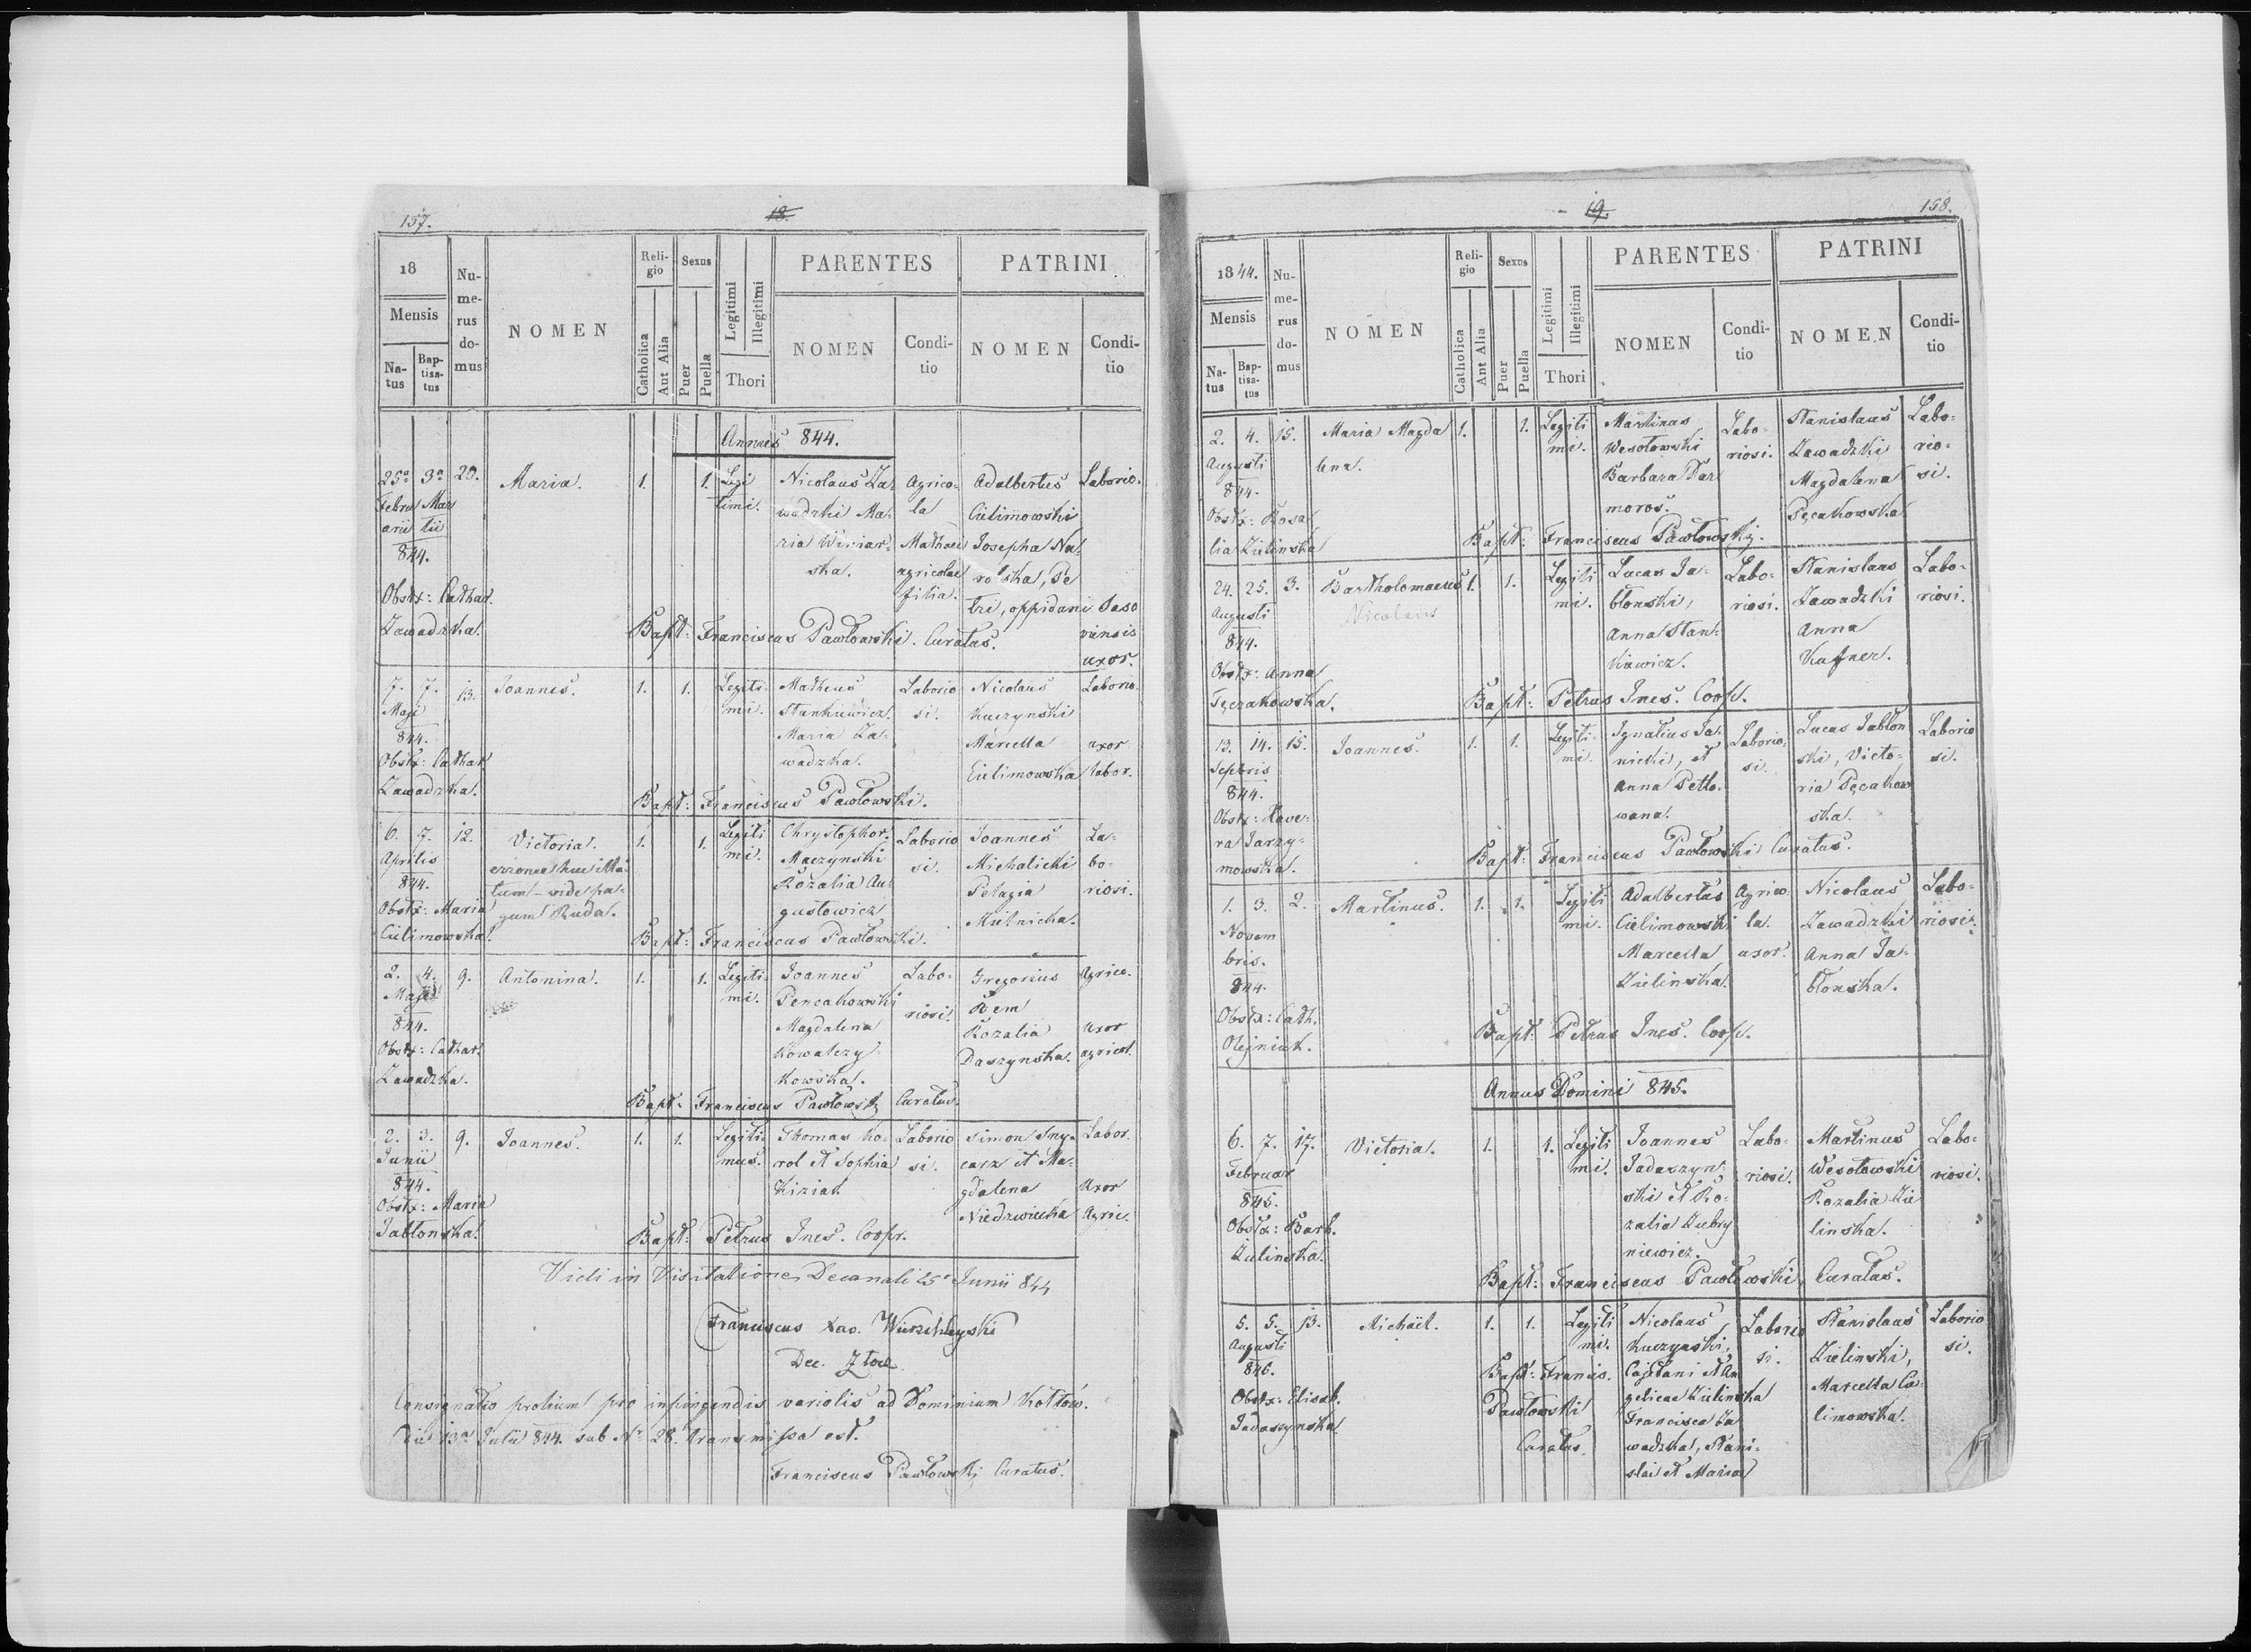 157.
18.
18
Mensis
Na-
tus
Bap-
tisa-
tus
Nu-
me-
rus
do-
mus
NOMEN
Reli-
gio
Catholica
Aut Alia
Sexus
Puer
Puella
Legitimi
Illegitimi
Thori
PARENTES
NOMEN
Condi-
tio
PATRINI
NOMEN
Condi-
tio
Annus 844.
25a 3a 20. Maria. 1. 1.
Febru Mar
arii tii
844.
Obstx: Cathar.
Zawadzka.
Legi
timi.
Nicolaus Za-
wadzki Ma-
ria Winiar-
ska.
Agrico-
la
Mathaei
agricolae
filia.
Adalbertus
Cielimowski
Josepha Na
rolska, Pe
tri, oppidani Saso
Laborio.
viensis
uxor.
Bapt: Franciscus Pawłowski. Curatus.
7. 7. 13. Joannes. 1. 1.
Maji
844.
Obstx: Cathar
Zawadzka.
Legiti-
mi.
Matheus
Stankiewicz.
Maria Za-
wadzka.
Laborio
si.
Nicolaus
Kuczynski
Marcella
Cielimowska
Laborio.
uxor
labor.
Bapt: Franciscus Pawłowski.
6. 7. 12. Victoria. 1. 1.
Aprilis
844.
Obstx: Maria
Cielimowska.
erronee huc illa-
tum - vide pa-
gum Ruda.
Legiti
mi.
Chrystophor.
Maczynski
Rozalia Au
gustowicz
Laborio
si.
Joannes
Michalicki
Pelagia
Mulnicka.
La-
bo-
riosi.
Bapt: Franciscus Pawłowski.
2. 4. 9. Antonina. 1. 1.
Maji
844.
Obstx: Cathar.
Zawadzka.
Legiti-
mi.
Joannes
Pencakowski
Magdalena
Kowalczy
kowska.
Labo-
riosi.
Gregorius
Bem
Rozalia
Daszynska.
Agrico.
Uxor
agricol.
Bapt: Franciscus Pawłowski Curatus.
2. 3. 9. Joannes. 1. 1.
Junii
844.
Obstx: Maria
Jabłonska.
Legiti-
mus.
Thomas Ko-
rol et Sophia
Kiziak
Laborio
si.
Simon Iny-
carz et Ma-
gdalena
Niedzwiecka
Labor.
Uxor
Agric.
Bapt: Petrus Ines. Coopr.
Vidi in Visitatione Decanali 25a Junii 844
Franciscus Xav.
Dec.
Consignatio prolium pro infungendis variolis ad Dominium Kołtow.
Die 13a Julii 844. sub No 28. transmissa est.
Franciscus Pawłowski Curatus.
19.
158.
1844.
Mensis
Na-
tus
Bap-
tisa-
tus
Nu-
me-
rus
do-
mus
NOMEN
Reli-
gio
Catholica
Aut Alia
Sexus
Puer
Puella
Legitimi
Illegitimi
Thori
PARENTES
NOMEN
Condi-
tio
PATRINI
NOMEN
Condi-
tio
2. 4. 15. Maria Magda 1. 1.
lena.
Augusti
844.
Obstx: Rosa
lia Zielinska
Legiti
mi.
Martinus
Wesołowski
Barbara Daz
moros.
Labo-
riosi.
Stanislaus
Zawadzki
Magdalena
Pęcakowska
Labo-
rio-
si.
Bapt: Franciscus Pawłowski.
24. 25. 3. Bartholomaeus 1. 1.
Nicolaus
Augusti
844.
Obstx: Anna
Tęczakowska.
Legiti
mi.
Lucas Ja-
błonski,
Anna Stan-
kiewicz.
Labo-
riosi.
Stanislaus
Zawadzki
Anna
Kafner.
Labo-
riosi.
Bapt: Petrus Ines. Coop.
13. 14. 15. Joannes. 1. 1.
Sepbris
844.
Obstx: Xave-
ra Jarzy-
mowska.
Legiti-
mi.
Ignatius Ja-
nicki, et
Anna Petło-
wana.
Laborio-
si.
Lucas Jabłon
ski, Victo-
ria Pęcakow
ska.
Laborio
si.
Bapt: Franciscus Pawłowski Curatus.
1. 3. 2. Martinus. 1. 1.
Novem
bris.
844.
Obstx: Cath.
Olejniuk.
Legiti
mi.
Adalbertus
Cielimowski
Marcella
Zielinska.
Agrico-
la.
uxor.
Nicolaus
Zawadzki
Anna Ja-
błonska.
Labo-
riosi.
Bapt: Petrus Ines. Coop.
Annus Domini 845.
6. 7. 17. Victoria. 1. 1.
Februar
845.
Obstx: Barb.
Zulinska.
Legiti
mi.
Joannes
Jadaszyn-
ski et Ro-
zalia Dubry
niewicz.
Labo-
riosi.
Martinus
Wesołowski
Rozalia Zie
linska.
Labo-
riosi.
Bapt: Franciscus Pawłowski, Curatus.
5. 5. 13. Michael. 1. 1.
Augusti
846.
Obstx: Elisab.
Jadaszynska
Legiti
mi.
Bapt: Francis.
Pawłowski
Curatus.
Nicolaus
Kuczynski,
Cajetani et An
gelicae Zielinska
Francisca Za
wadzka, Stani-
slai et Maria
Laborio
si.
Stanislaus
Zielinski,
Marcella Ce-
limowska.
Laborio
si.